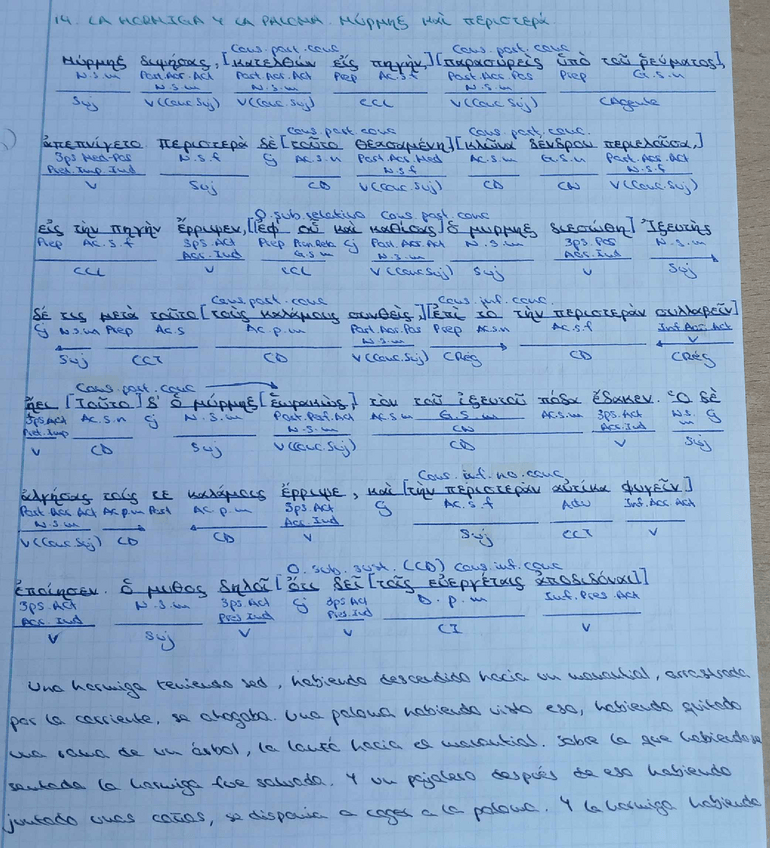 14. LA HORMIGA Y LA PALOMA. Μύρμηξ καὶ περιστερά.
Cons. part. conc Cons. part. conc
Μύρμηξ διψήσας, [κατελθὼν εἰς πηγήν,] [παρασυρεὶς ὑπὸ τοῦ ῥεύματος],
N.S.m Part.Aor.Act Part.Aor.Act Prep Ac.S.f Part.Aor.Pas Prep G.S.n
N.S.m N.S.m N.S.m
Suj V(Conc.Suj) V(Conc.Suj) CCL V(Conc.Suj) CAgente
Cons. part conc Cons. part. conc.
ἀπεπνίγετο περιστερὰ δὲ [τοῦτο θεασαμένη] [κλῶνα δένδρου περιελοῦσα,]
3ps Med-Pas N.S.f Cj Ac.S.n Part.Aor.Med Ac.S.m G.S.n Part.Aor.Act
Pret.Imp.Ind N.S.f N.S.f
V Suj CD V(Conc.Suj) CD CN V(Conc.Suj)
O. sub. relativo Cons. part. conc
εἰς τὴν πηγὴν ἔρριψεν, [[ἐφ' οὗ καὶ καθίσας] ὁ μύρμηξ διεσώθη] Ἰξευτὴς
Prep Ac.S.f 3ps.Act Prep Pron.Rela Cj Part.Aor.Act N.S.m 3ps.Pas N.S.m
Aor.Ind G.S.m N.S.m Aor.Ind
CCL V CCL V(Conc.Suj) Suj V Suj
Cons. part. conc Cons. inf. conc.
δέ τις μετὰ τοῦτο [τοὺς καλάμους συνθεὶς] [ἐπὶ τὸ τὴν περιστερὰν συλλαβεῖν]
Cj N.S.m Prep Ac.S Ac.p.m Part.Aor.Pas Prep Ac.S.n Ac.S.f Inf.Aor.Act
N.S.m V
Suj CCT CD V(Conc.Suj) CRég CD CRég
Cons. part. conc
ᾔει [Τοῦτο] δ' ὁ μύρμηξ [ἑωρακώς,] τὸν τοῦ ἰξευτοῦ πόδα ἔδακεν. Ὁ δὲ
3ps.Act Ac.S.n Cj N.S.m Part.Perf.Act Ac.S.m G.S.m Ac.S.m 3ps.Act N.S. Cj
Pret.Imp N.S.m CN Aor.Ind m
V CD Suj V(Conc.Suj) CD V Suj
Cons. inf. no. conc
ἀλγήσας τούς τε καλάμους ἔρριψε, καὶ [τὴν περιστερὰν αὐτίκα φυγεῖν]
Part Aor Act Ac.p.m Part Ac.p.m 3ps.Act Cj Ac.S.f Adv Inf.Aor.Act
N.S.m Aor.Ind
V(Conc.Suj) CD CD V Suj CCT V
O. sub. sust. (CD) Cons. inf. conc
ἐποίησεν. ὁ μῦθος δηλοῖ [ὅτι δεῖ [τοῖς εὐεργέταις ἀποδιδόναι]]
3ps.Act N.S.m 3ps.Act Cj 3ps.Act D.p.m Inf.Pres.Act
Aor.Ind Pres.Ind Pres.Ind
V Suj V V CI V
Una hormiga teniendo sed, habiendo descendido hacia un manantial, arrastrada
por la corriente, se ahogaba. Una paloma habiendo visto eso, habiendo quitado
una rama de un árbol, la lanzó hacia el manantial. Sobre la que habiendose
sentada la hormiga fue salvada. Y un pajalero después de eso habiendo
juntado unas cañas, se disponía a coger a la paloma. Y la hormiga habiendo